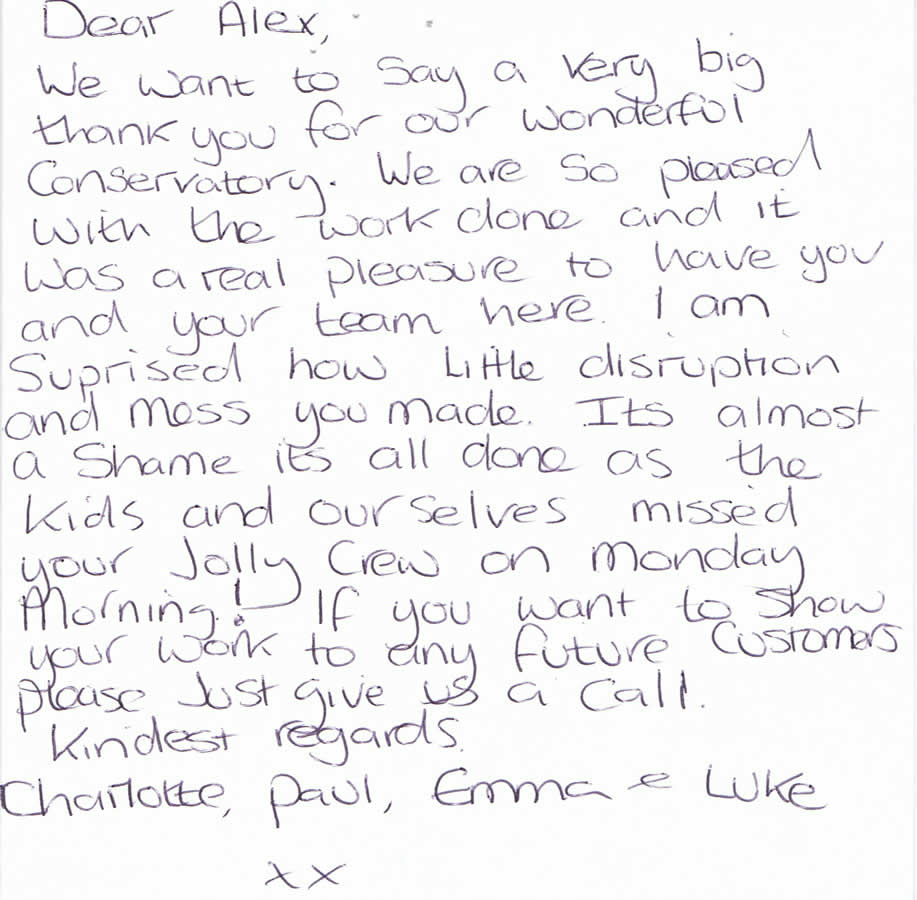 Dear Alex,
We want to say a very big
thank you for our wonderful
Conservatory. We are so pleased
with the work done and it
was a real pleasure to have you
and your team here. I am
Suprised how Little disruption
and mess you made. Its almost
a Shame its all done as the
kids and ourselves missed
your Jolly Crew on Monday
Morning! If you want to show
your work to any future Customers
please Just give us a Call.
Kindest regards.
Charlotte, Paul, Emma & Luke
xx